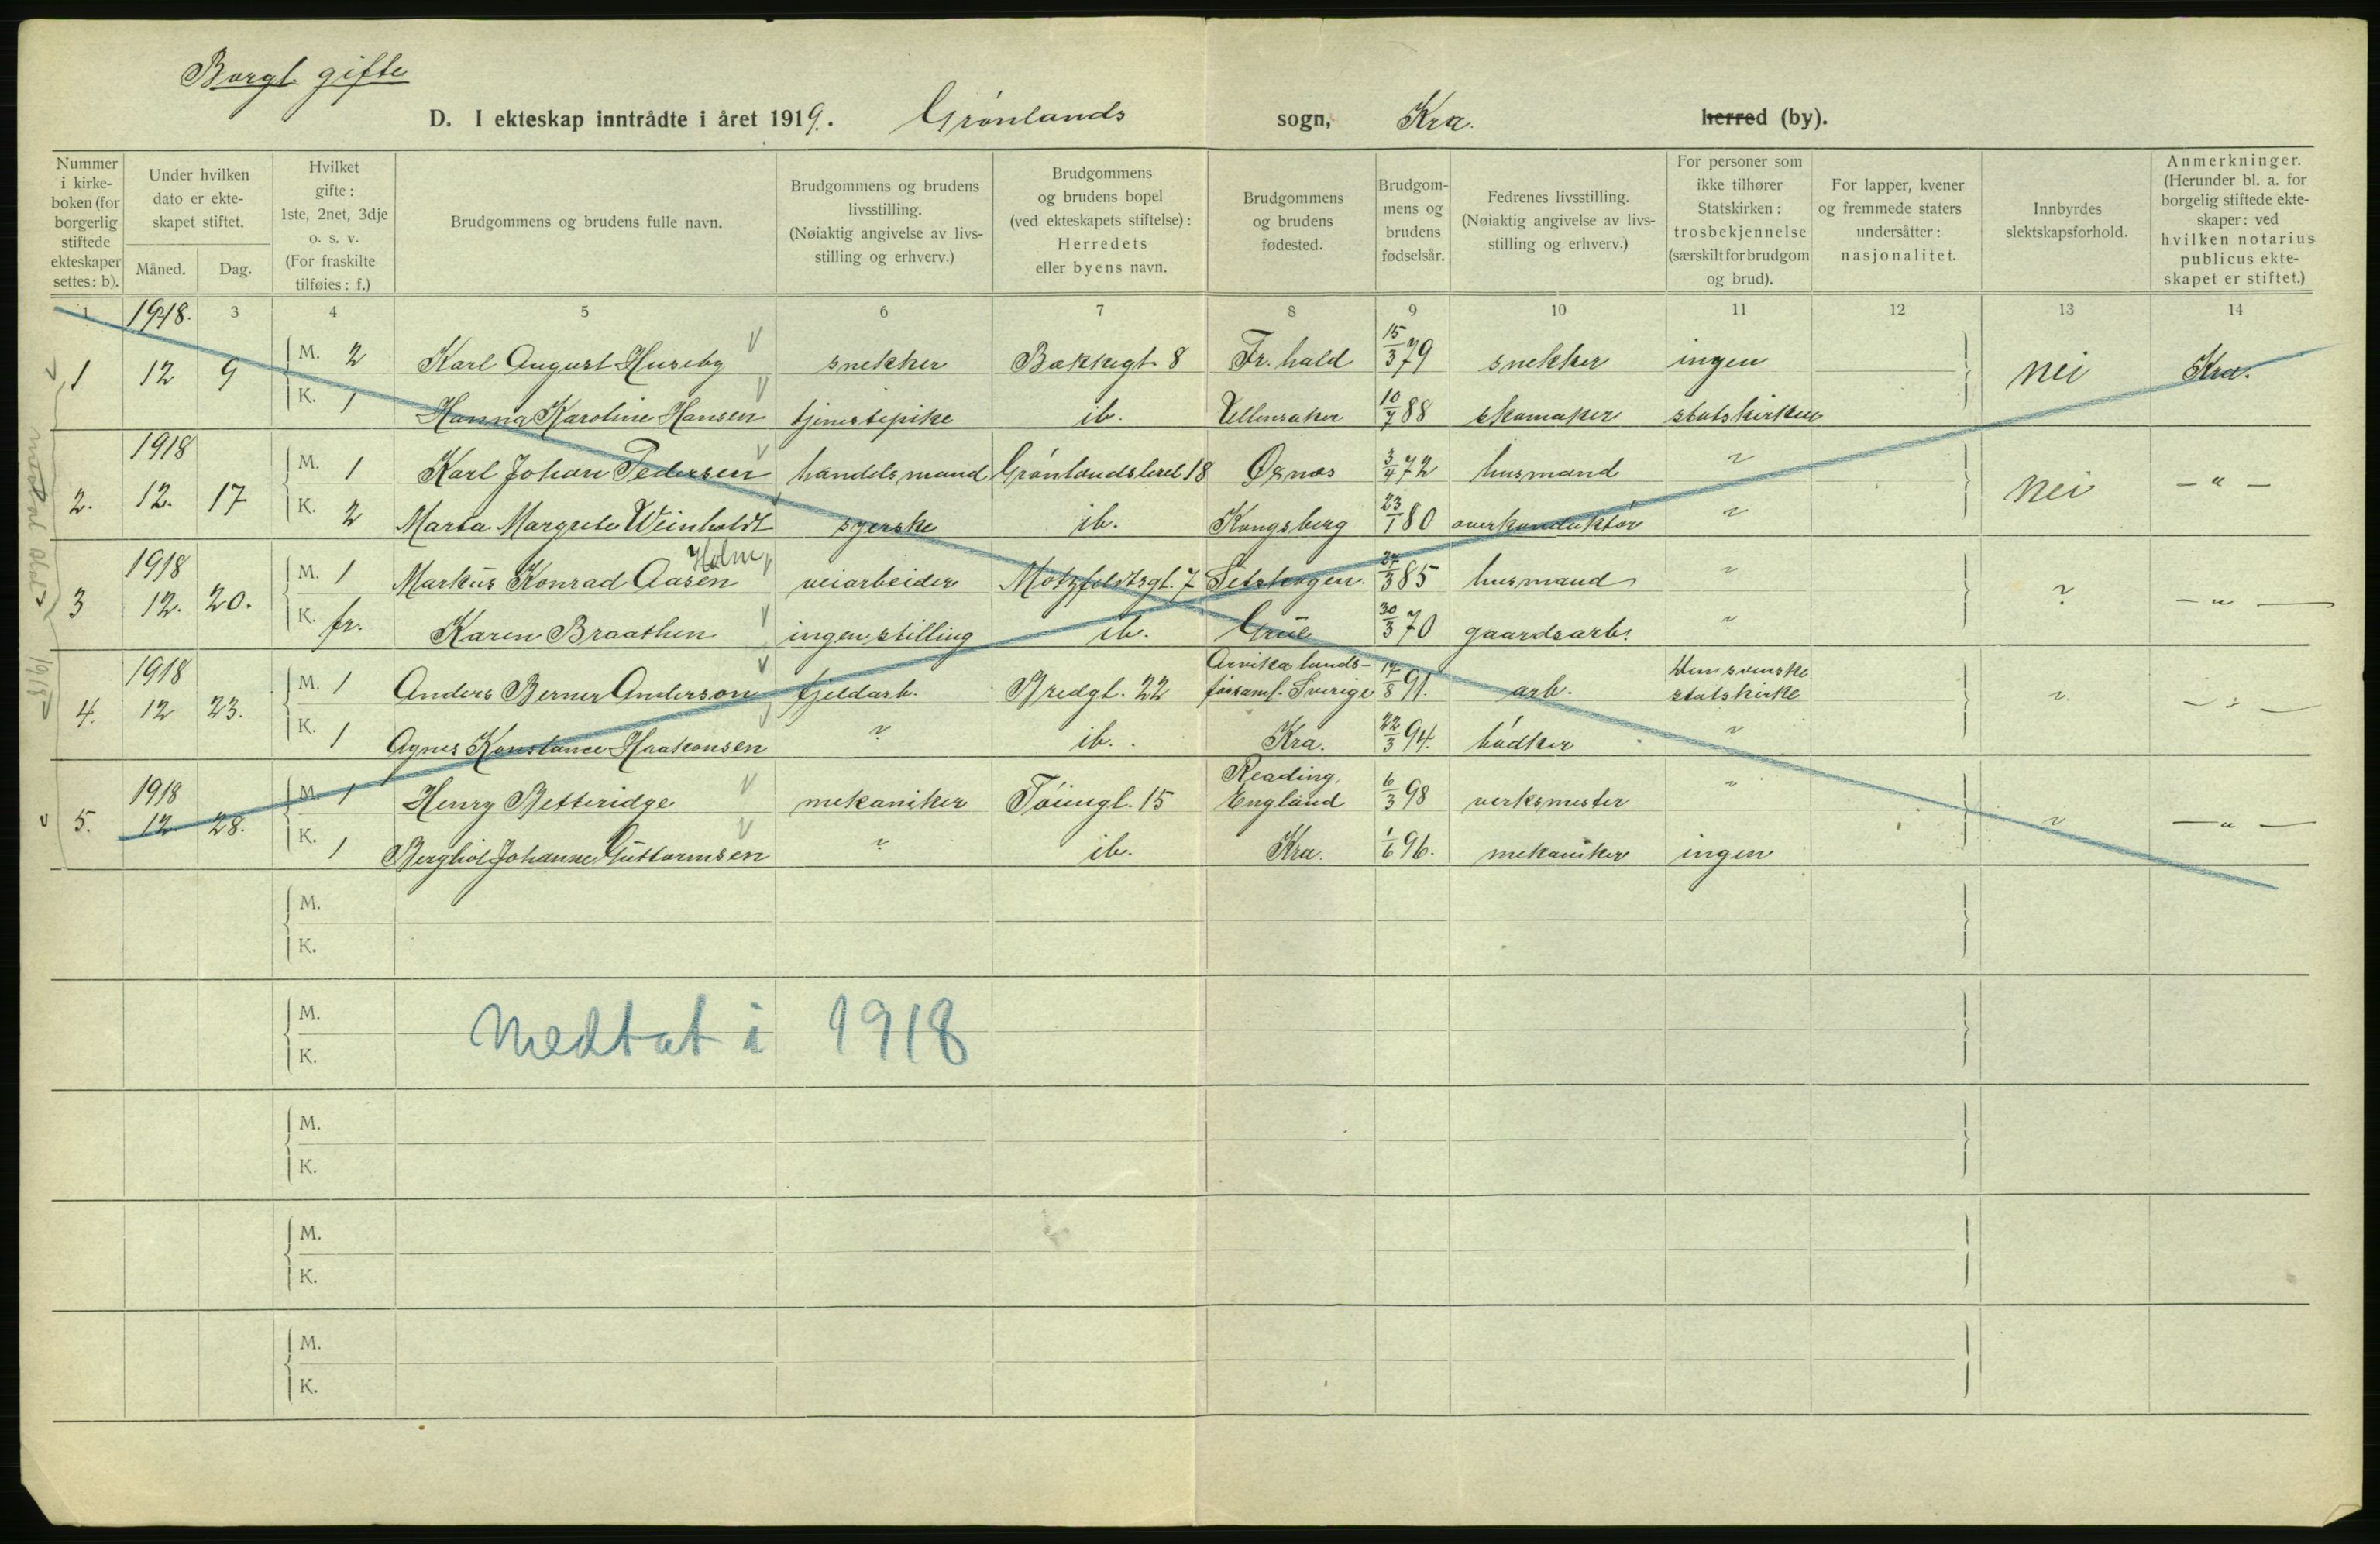 Borgl. gifte
D. I ekteskap inntrådte i året 1919. Grønlands sogn, Kra. herred (by).
Nummer i kirke-boken (for borgerlig stiftede ekteskaper settes: b).
Under hvilken dato er ekte-skapet stiftet.
Måned. Dag.
Hvilket gifte: 1ste, 2net, 3dje o. s. v. (For fraskilte tilføies: f.)
Brudgommens og brudens fulle navn.
Brudgommens og brudens livsstilling. (Nøiaktig angivelse av livs-stilling og erhverv.)
Brudgommens og brudens bopel (ved ekteskapets stiftelse): Herredets eller byens navn.
Brudgommens og brudens fødested.
Brudgom-mens og brudens fødselsår.
Fedrenes livsstilling. (Nøiaktig angivelse av livs-stilling og erhverv.)
For personer som ikke tilhører Statskirken: trosbekjennelse (særskilt for brudgom og brud).
For lapper, kvener og fremmede staters undersåtter: nasjonalitet.
Innbyrdes slektskapsforhold.
Anmerkninger. (Herunder bl. a. for borgelig stiftede ekte-skaper: ved hvilken notarius publicus ekte-skapet er stiftet.)
1 1918. 3 4 5 6 7 8 9 10 11 12 13 14
1 12 9 M. 2 Karl August Huseby snekker Bakkegt 8 Fr. hald 15/3 79 snekker ingen nei Kra.
K. 1 Hanna Karoline Hansen tjenestepike ib. Ullensaker 10/7 88 skomaker statskirken
1918
2. 12. 17 M. 1 Karl Johan Pedersen handelsmand Grønlandsleret 18 Øsnes 3/4 72 husmand " nei — " —
K. 2 Marta Margrete Weinholdt syerske ib. Kongsberg 23/1 80 overkonduktør "
Holm
1918
3 12. 20. M. 1 Markus Konrad Aasen veiarbeider Motzfeldtsgt. 7 Setskogen. 27/3 85 husmand " " — " —
K. fr. Karen Braathen ingen stilling ib. Grue 30/3 70 gaardsarb. "
1918
4. 12 23. M. 1 Anders Berner Anderson fjeldarb. Bredgt. 22 Arvika lands-församl. Sverige 17/8 91. arb. Den svenske statskirke " — " —
K. 1 Agnes Konstance Haakonsen " ib. Kra. 22/3 94. bødker "
1918
5. 12 28. M. 1 Henry Betteridge mekaniker Tøiengt. 15 Reading, England 6/3 98 verksmester " " — " —
K. 1 Bergliot Johanne Guttormsen " ib. Kra. 1/6 96. mekaniker ingen
M.
K.
M.
Medtat i 1918
K.
M.
K.
M.
K.
M.
K.
1918